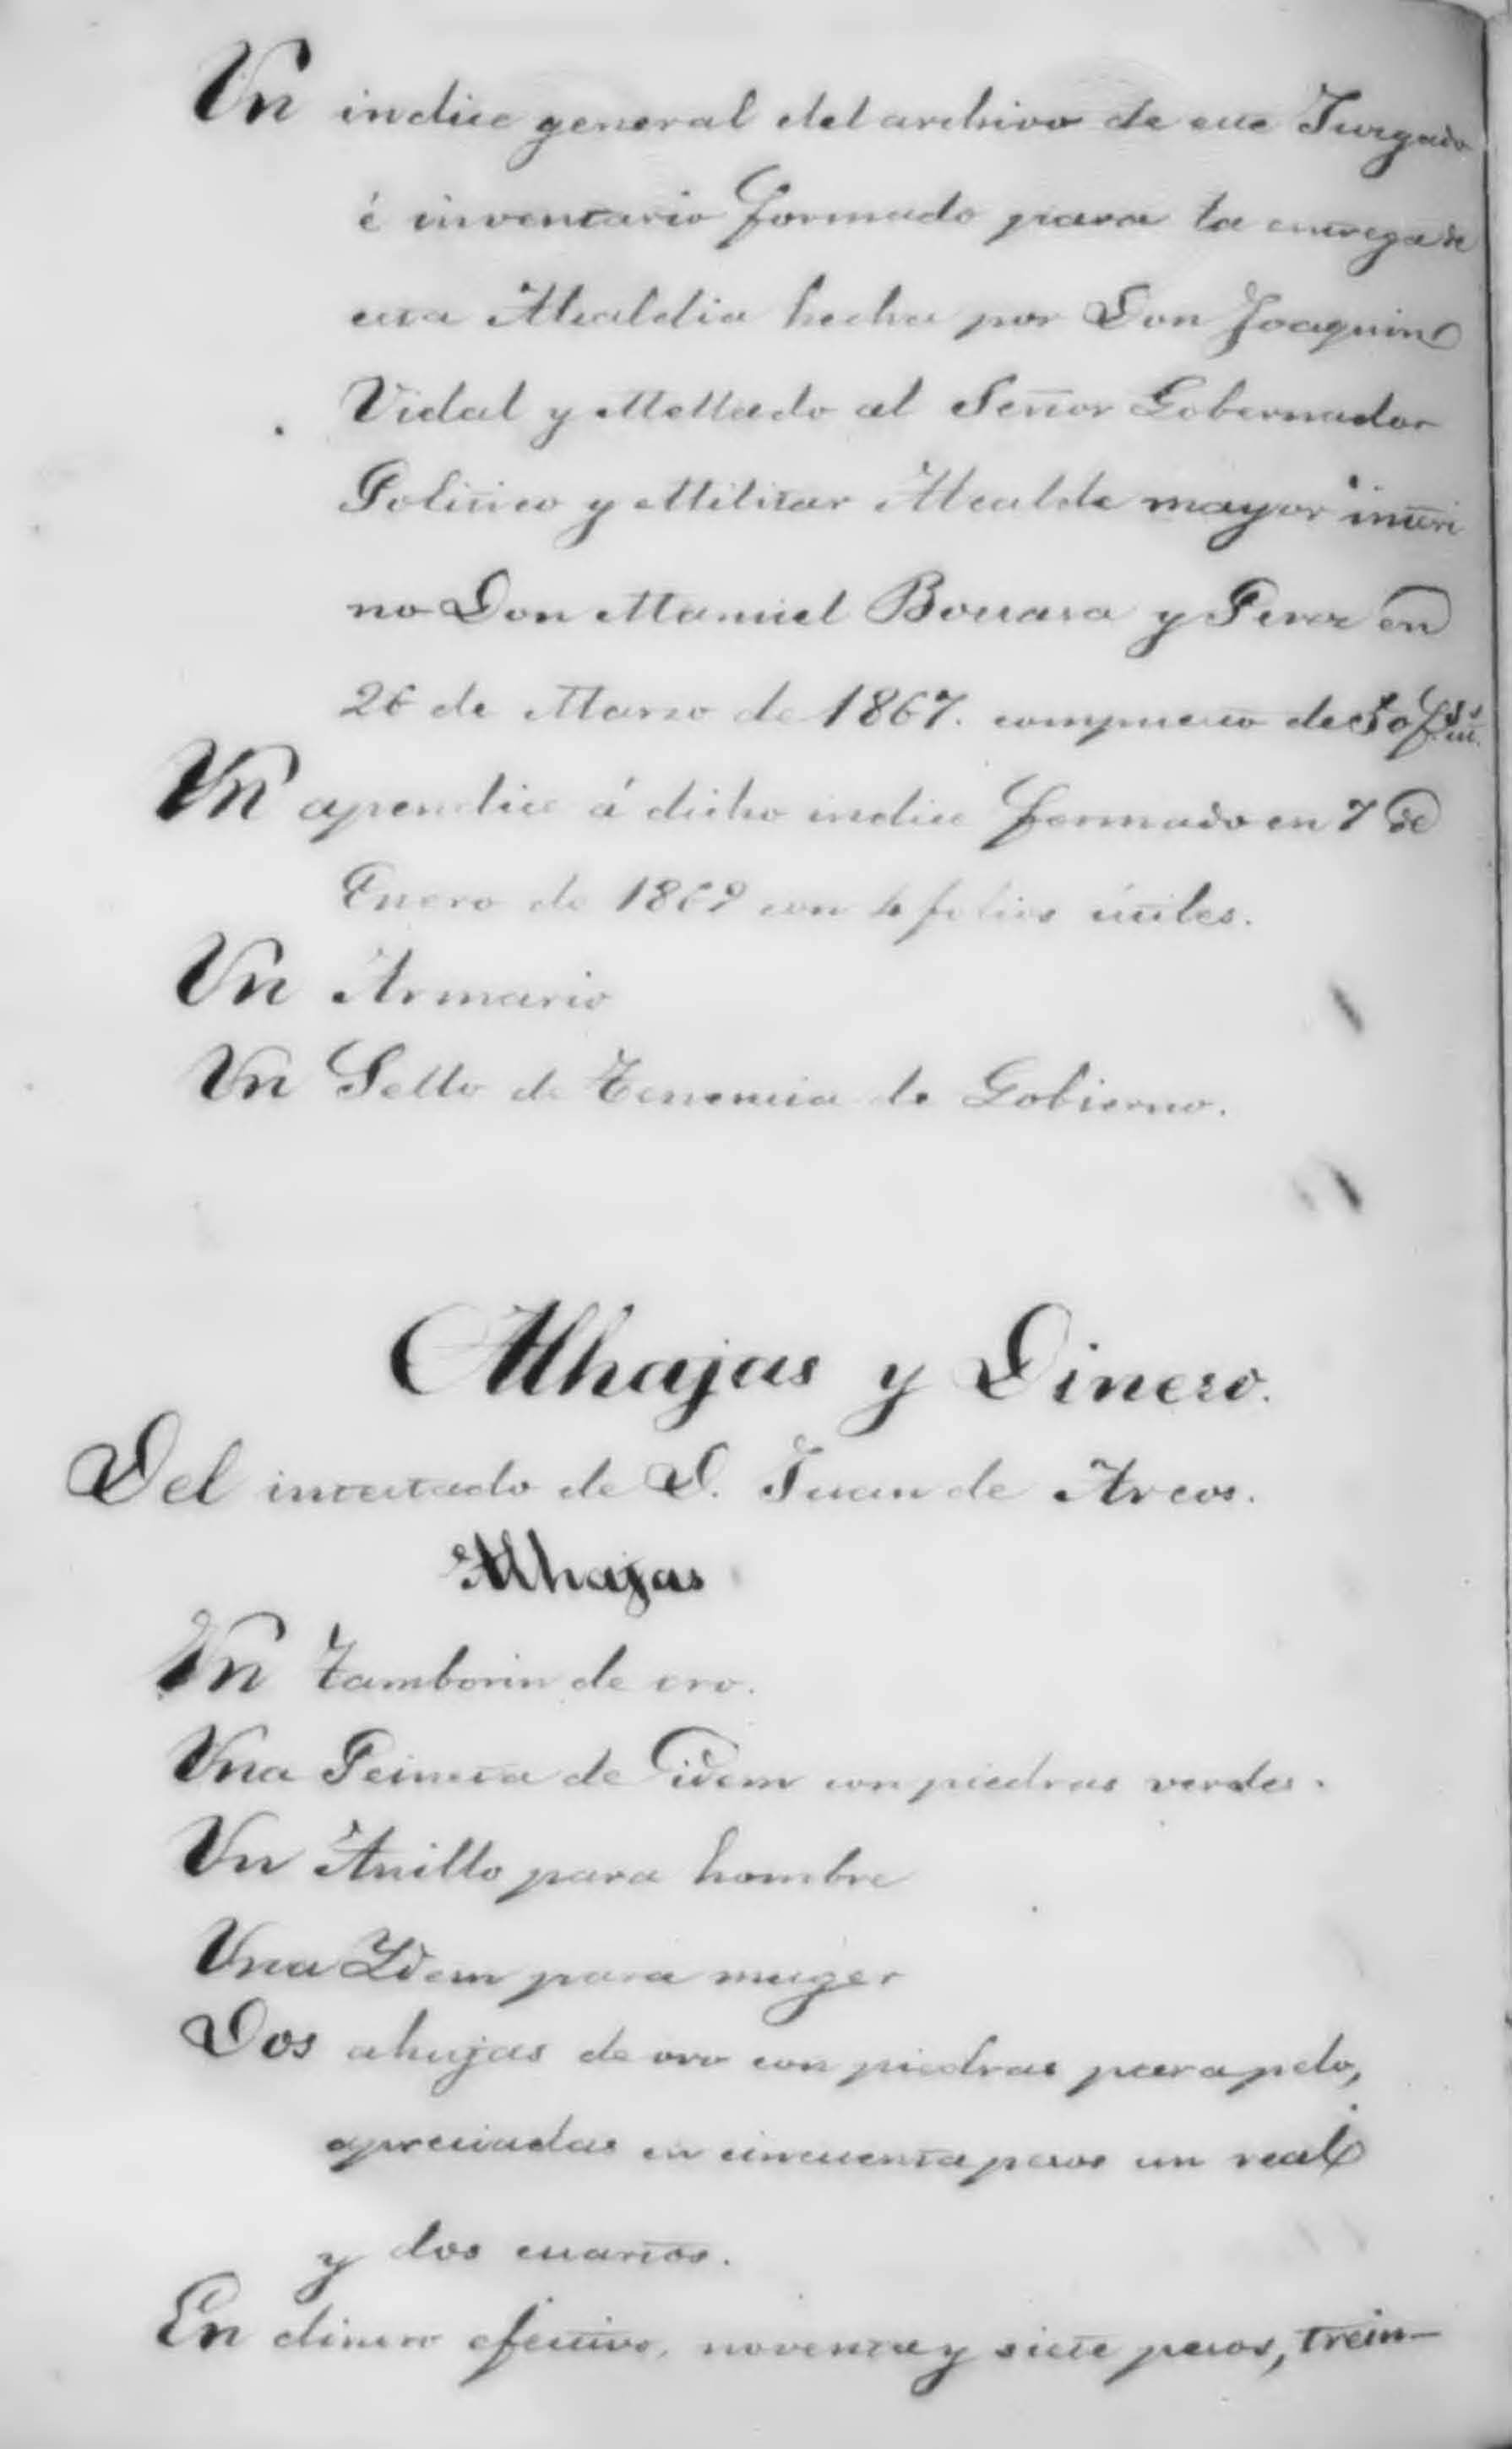 Un indice general del archivo de este Juzgado
é inventario formado para la entrega de
esta Alcaldia hecha por Don Joaquin
Vidal y Mellado al Señor Gobernador
Politico y Militar Alcalde mayor interi
no Don Manuel Boscasa y Perez en
26 de Marzo de 1867. compuesto de 50 f.s út.
Un apendice á dicho indice formado en 7 de
Enero de 1869 con 4 folios útiles.
Un Armario
Un Sello de Tenencia de Gobierno.
Alhajas y Dinero.
Del intestado de D. Juan de Arcos.
Alhajas
Un Tamborin de oro.
Una Peineta de idem con piedras verdes.
Un Anillo para hombre
Una Idem para muger
Dos ahujas de oro con piedras para pelo,
apreciadas en cincuenta pesos un real
y dos cuartos.
En dinero efectivo, noventa y siete pesos, trein-